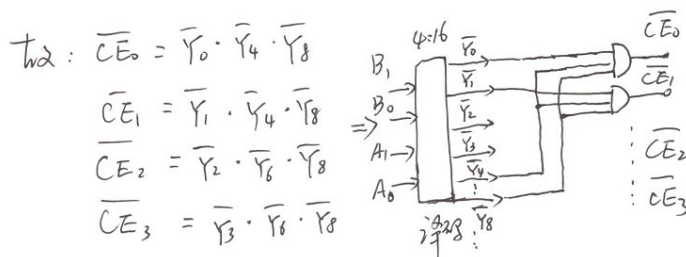 故: C̅E̅₀ = Y̅₀ · Y̅₄ · Y̅₈
C̅E̅₁ = Y̅₁ · Y̅₄ · Y̅₈
C̅E̅₂ = Y̅₂ · Y̅₆ · Y̅₈
C̅E̅₃ = Y̅₃ · Y̅₆ · Y̅₈
⇒
4:16
B₁
B₀
A₁
A₀
Y̅₀
Y̅₁
Y̅₂
Y̅₃
Y̅₄
⋮
Y̅₈
⋮
C̅E̅₀
C̅E̅₁
⋮ C̅E̅₂
⋮ C̅E̅₃